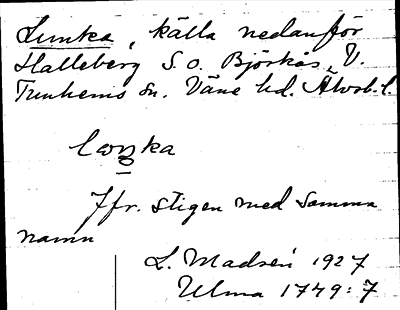 Lunka, källa nedanför
Halleberg S. o. Björkås, V.
Tunhems sn. Väne hd. Älvsb. l.
Jfr. stigen med samma
namn
L. Madsén 1927
Ulma 1749:7